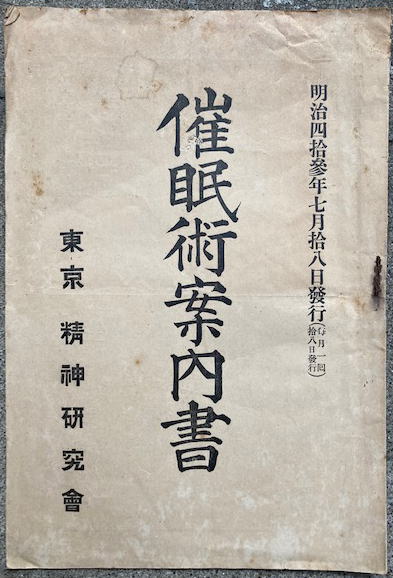 明治四拾參年七月拾八日發行（每月一回拾八日發行）
催眠術案内書
東京 精神研究會